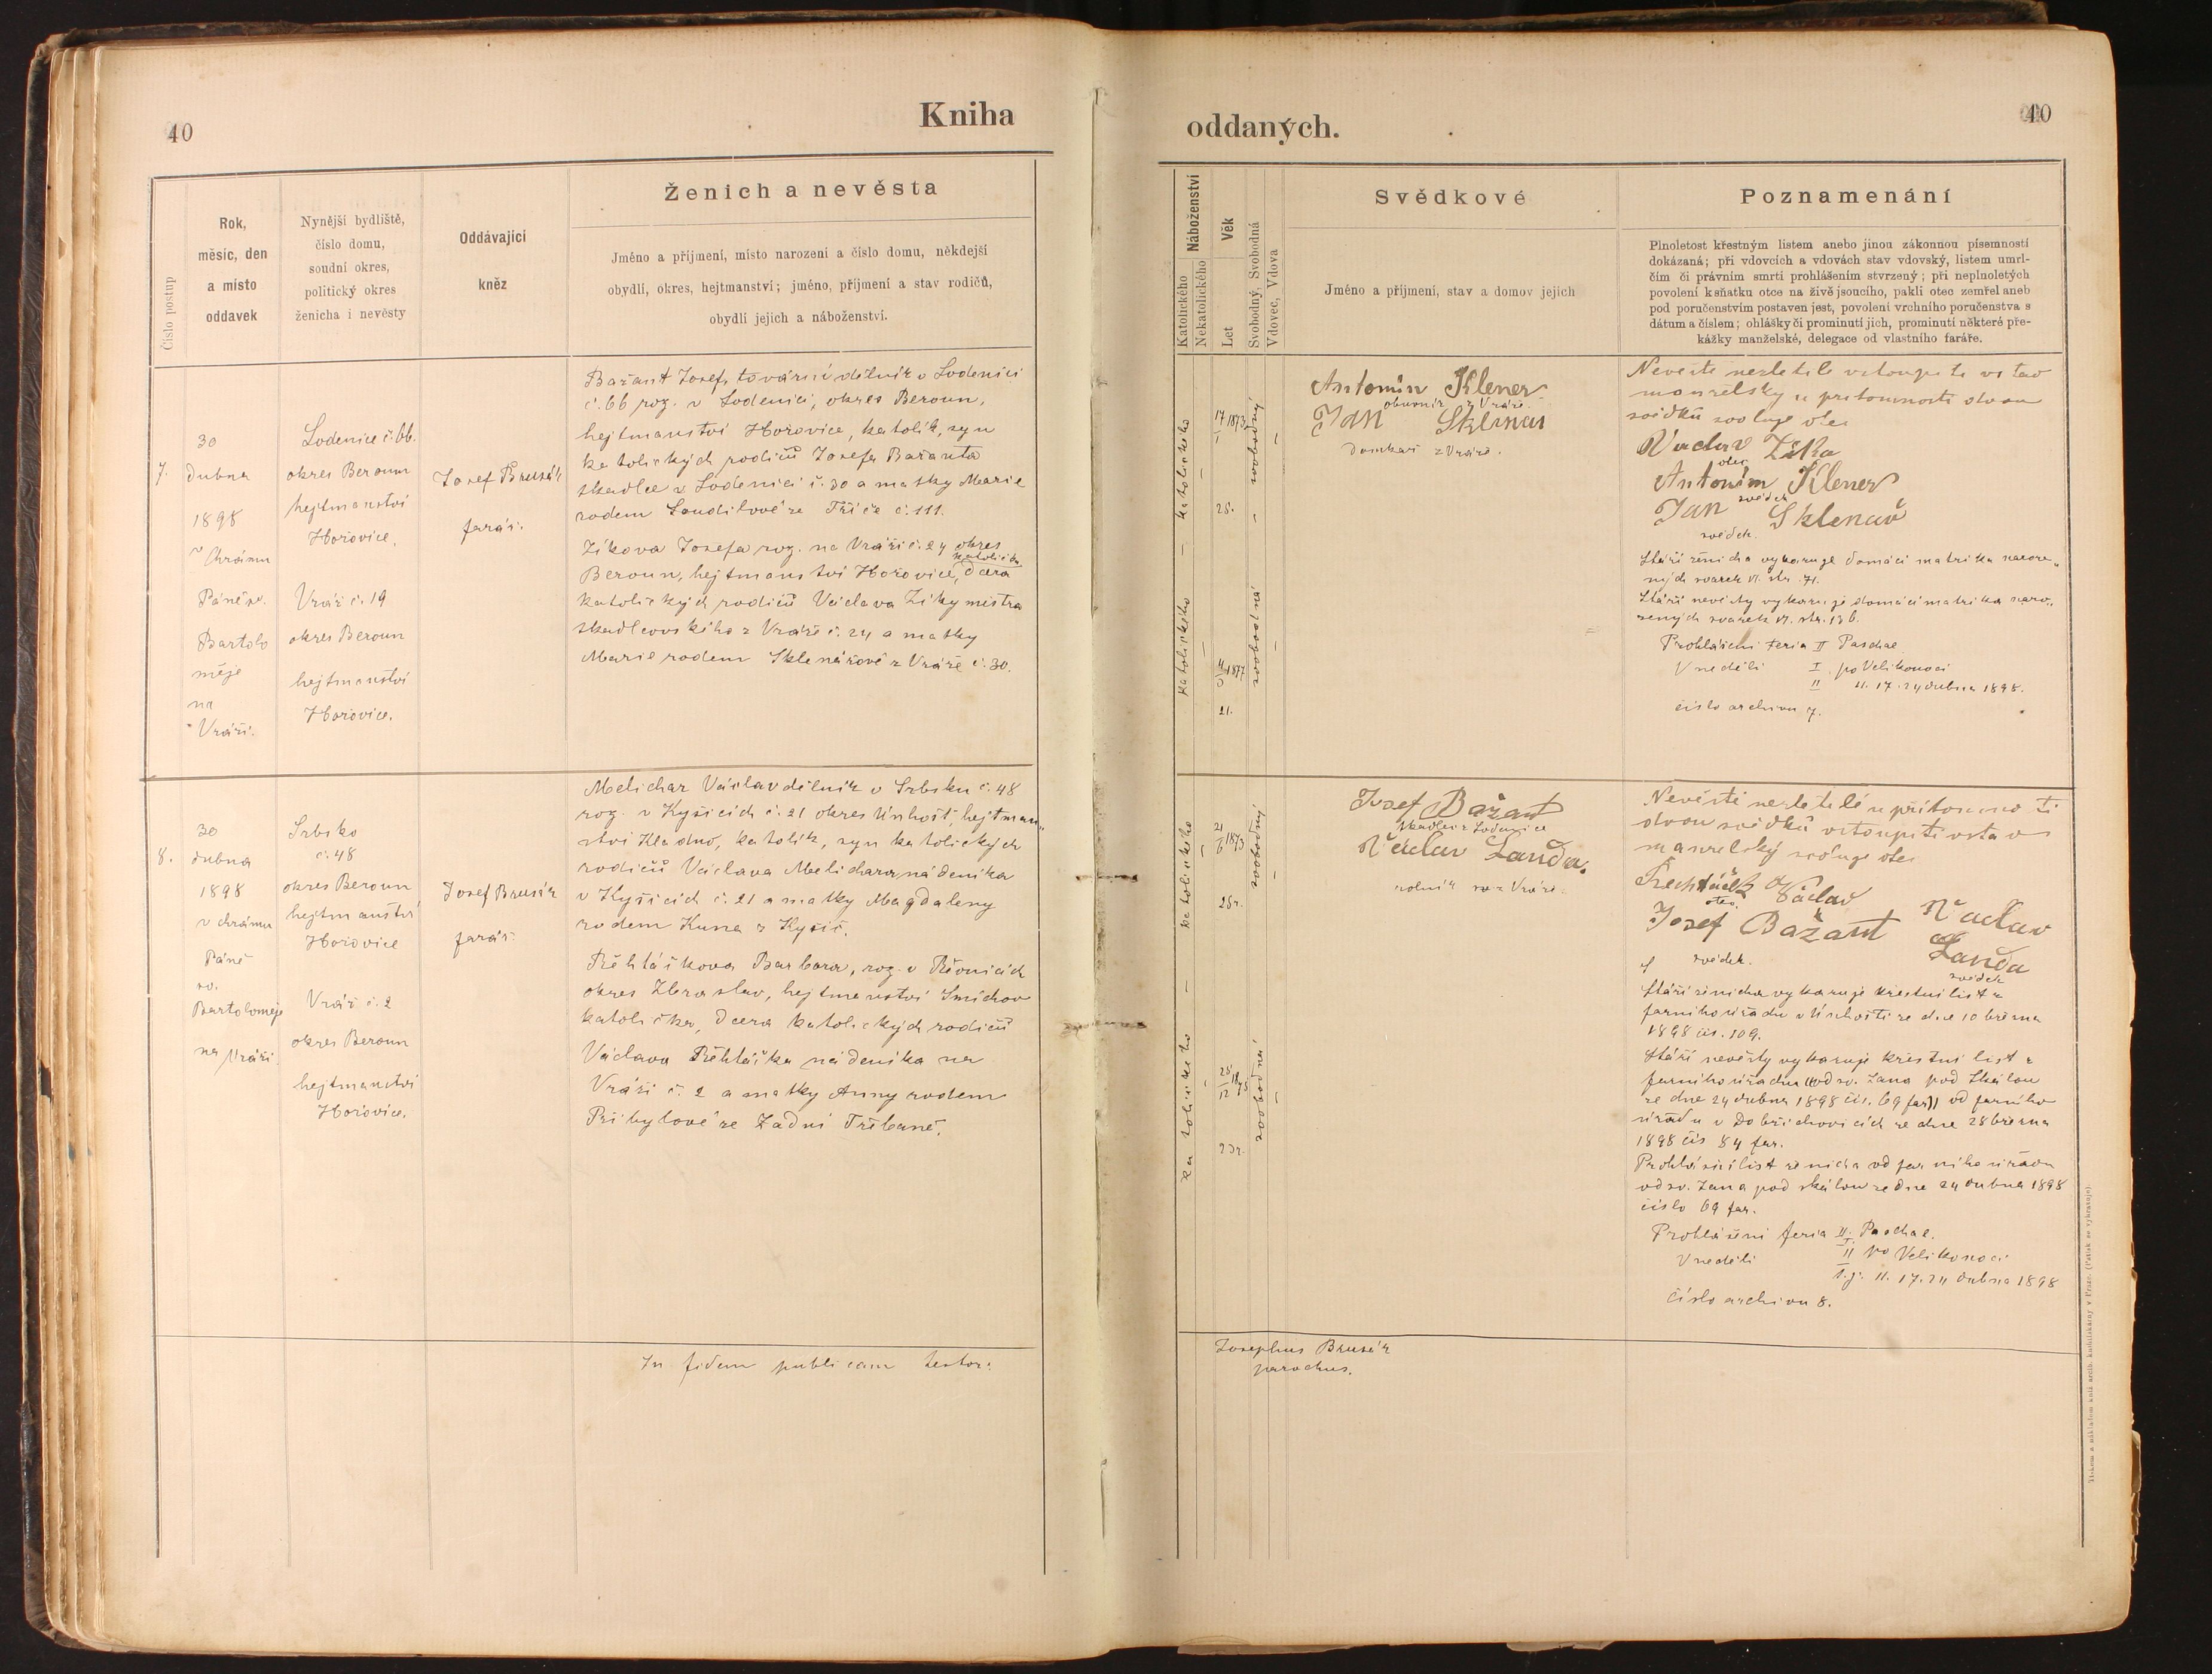 40
Kniha
Číslo postup
Rok,
měsíc, den
a místo
oddavek
Nynější bydliště,
číslo domu,
soudní okres,
politický okres
ženicha i nevěsty
Oddávající
kněz
Ženich a nevěsta
Jméno a příjmení, místo narození a číslo domu, někdejší
obydlí, okres, hejtmanství; jméno, příjmení a stav rodičů,
obydlí jejich a náboženství.
7.
30
dubna
1898
v Chrámu
Páně sv.
Bartolo
měje
na
Vráži.
Lodenice č. 66.
okres Beroun
hejtmanství
Hořovice.
Vráž č. 19
okres Beroun
hejtmanství
Hořovice.
Josef Brusák
farář.
Bažant Josef, tovární dělník v Lodenici
č. 66 roz. v Lodenici, okres Beroun,
hejtmanství Hořovice, katolík, syn
katolických rodičů Josefa Bažanta
tkadlce v Lodenici č. 30 a matky Marie
rodem Loudilové ze Tříče č. 111.
Zíkova Josefa roz. na Vráži č. 24 okres
katolička
Beroun, hejtmanství Hořovice, dcera
katolických rodičů Václava Zíky mistra
tkadlcovského z Vráže č. 24 a matky
Marie rodem Sklenářové z Vráže č. 30.
8.
30
dubna
1898
v chrámu
Páně
sv.
Bartoloměje
na Vráži.
Srbsko
č. 48
okres Beroun
hejtmanství
Hořovice
Vráž č. 2
okres Beroun
hejtmanství
Hořovice.
Josef Brusák
farář.
Melichar Václav dělník v Srbsku č. 48
roz. v Kyšicích č. 21 okres Únhošť, hejtman„
ství Kladno, katolík, syn katolických
rodičů Václava Melichara, nádeníka
v Kyšicích č. 21 a matky Magdaleny
rodem Kuna z Kyšic.
Řehláčkova Barbora, roz. v Řevnicích
okres Zbraslav, hejtmanství Smíchov
katolička, dcera katolických rodičů
Václava Řehláčka nádeníka na
Vráži č. 2 a matky Anny rodem
Přibylové ze Zadní Třebaně.
In fidem publicam testor:
oddaných.
40
Náboženství
Katolického
Nekatolického
Věk
Let
Svobodný, Svobodná
Vdovec, Vdova
Svědkové
Jméno a příjmení, stav a domov jejich
Poznamenání
Plnoletost křestným listem anebo jinou zákonnou písemností
dokázaná; při vdovcích a vdovách stav vdovský, listem umrl-
čím či právním smrti prohlášením stvrzený; při neplnoletých
povolení k sňatku otce na živě jsoucího, pakli otec zemřel aneb
pod poručenstvím postaven jest, povolení vrchního poručenstva s
dátum a číslem; ohlášky či prominutí jich, prominutí některé pře-
kážky manželské, delegace od vlastního faráře.
katolického
17/1 1873
25.
svobodný
katolického
4/3 1877
21.
svobodná
Antonín Klener
obuvník z Vráže.
Jan Sklenař
domkař z Vráže.
Nevěstě nezletilé vstoupiti v stav
manželský u přítomnosti dvou
svědků svoluje otec
Václav Zíka
otec
Antonín Klener
svědek
Jan Sklenář
svědek.
Stáří ženicha vykazuje domácí matrika naroze„
ných svazek VI. str. 71.
Stáří nevěsty vykazuje domácí matrika naro„
zených svazek VI. str. 136.
Prohlášení feria II Paschae
V neděli I. po Velikonoci
II 11. 17. 24 dubna 1898.
číslo archivu 7.
katolického
21/6 1873
25 r.
svobodný
katolického
25/12 1875
23 r.
svobodná
Josef Bažant
tkadlec z Lodenice
Václav Landa.
rolník z Vráže.
Nevěstě nezletilé u přítomnosti
dvou svědků vstoupiti v stav
manželský svoluje otec
Václav
otec
Josef Bažant
svědek.
Václav
Landa
svědek
Stáří ženicha vykazuje křestní list z
farního úřadu v Únhošti ze dne 10 března
1898 čís. 109.
Stáří nevěsty vykazuje křestní list z
farního úřadu od sv. Jana pod Skalou
ze dne 24 dubna 1898 čís. 69 far. od farního
úřadu v Dobřichovicích ze dne 28 března
1898 čís 84 far.
Prohlášecí list ženicha od farního úřadu
od sv. Jana pod skalou ze dne 24 dubna 1898
číslo 69 far.
Prohlášení feria II. Paschae.
V neděli I. II po Velikonoci
t. j. 11. 17. 24 dubna 1898
Číslo archivu 8.
Josephus Brusák
parochus.
Tiskem a nákladem kníž. arcib. knihtiskárny v Praze. (Patisk se vyhrazuje).